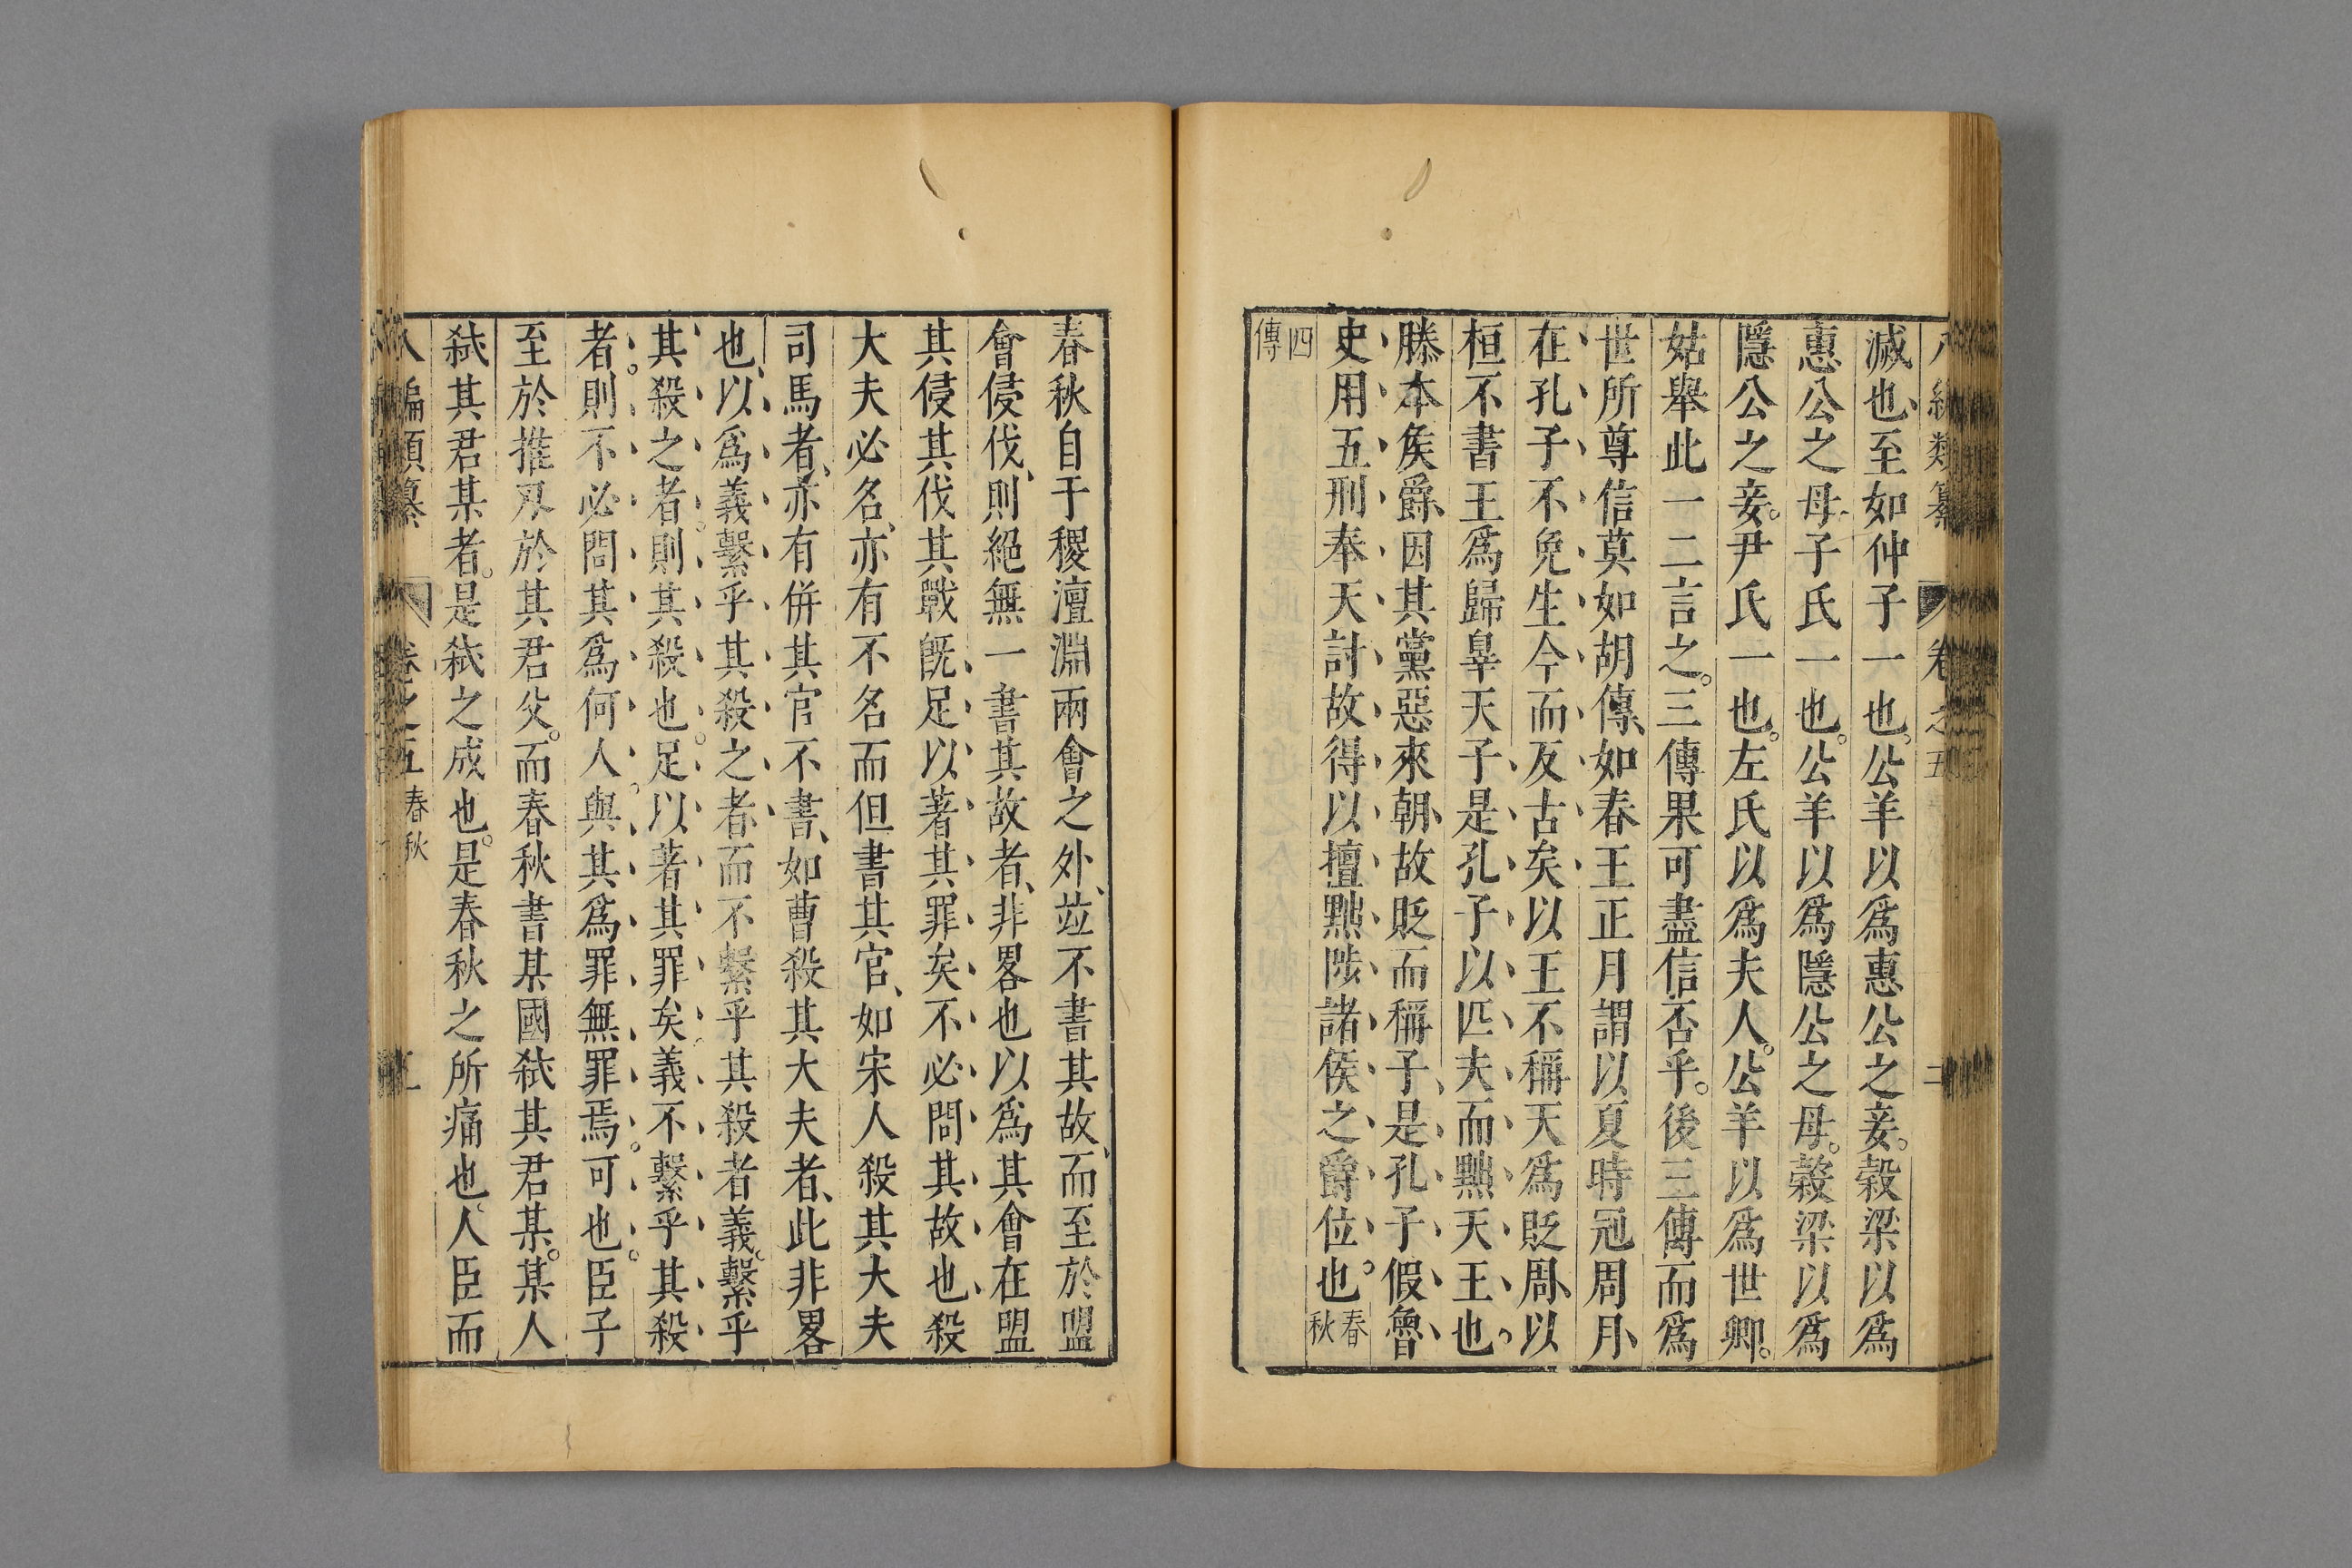 八編類纂 卷之五 二
滅也至如仲子一也公羊以爲惠公之妾穀梁以爲
惠公之母子氏一也公羊以爲隱公之母穀梁以爲
隱公之妾尹氏一也左氏以爲夫人公羊以爲世卿
姑舉此一二言之三傳果可盡信否乎後三傳而爲
世所尊信莫如胡傳如春王正月謂以夏時冠周月
在孔子不免生今而反古矣以王不稱天爲貶周以
桓不書王爲歸辠天子是孔子以匹夫而黜天王也
滕本矦爵因其黨惡來朝故貶而稱子是孔子假魯
史用五刑奉天討故得以擅黜陟諸侯之爵位也春秋
四傳
春秋自于稷澶淵兩會之外竝不書其故而至於盟
會侵伐則絕無一書其故者非畧也以爲其會在盟
其侵其伐其戰旣足以著其罪矣不必問其故也殺
大夫必名亦有不名而但書其官如宋人殺其大夫
司馬者亦有倂其官不書如曹殺其大夫者此非畧
也以爲義繫乎其殺之者而不繫乎其殺者義繫乎
其殺之者則其殺也足以著其罪矣義不繫乎其殺
者則不必問其爲何人與其爲罪無罪焉可也臣子
至於推刃於其君父而春秋書某國弑其君某某人
弑其君某者是弑之成也是春秋之所痛也人臣而
八編類纂 卷之五 春秋